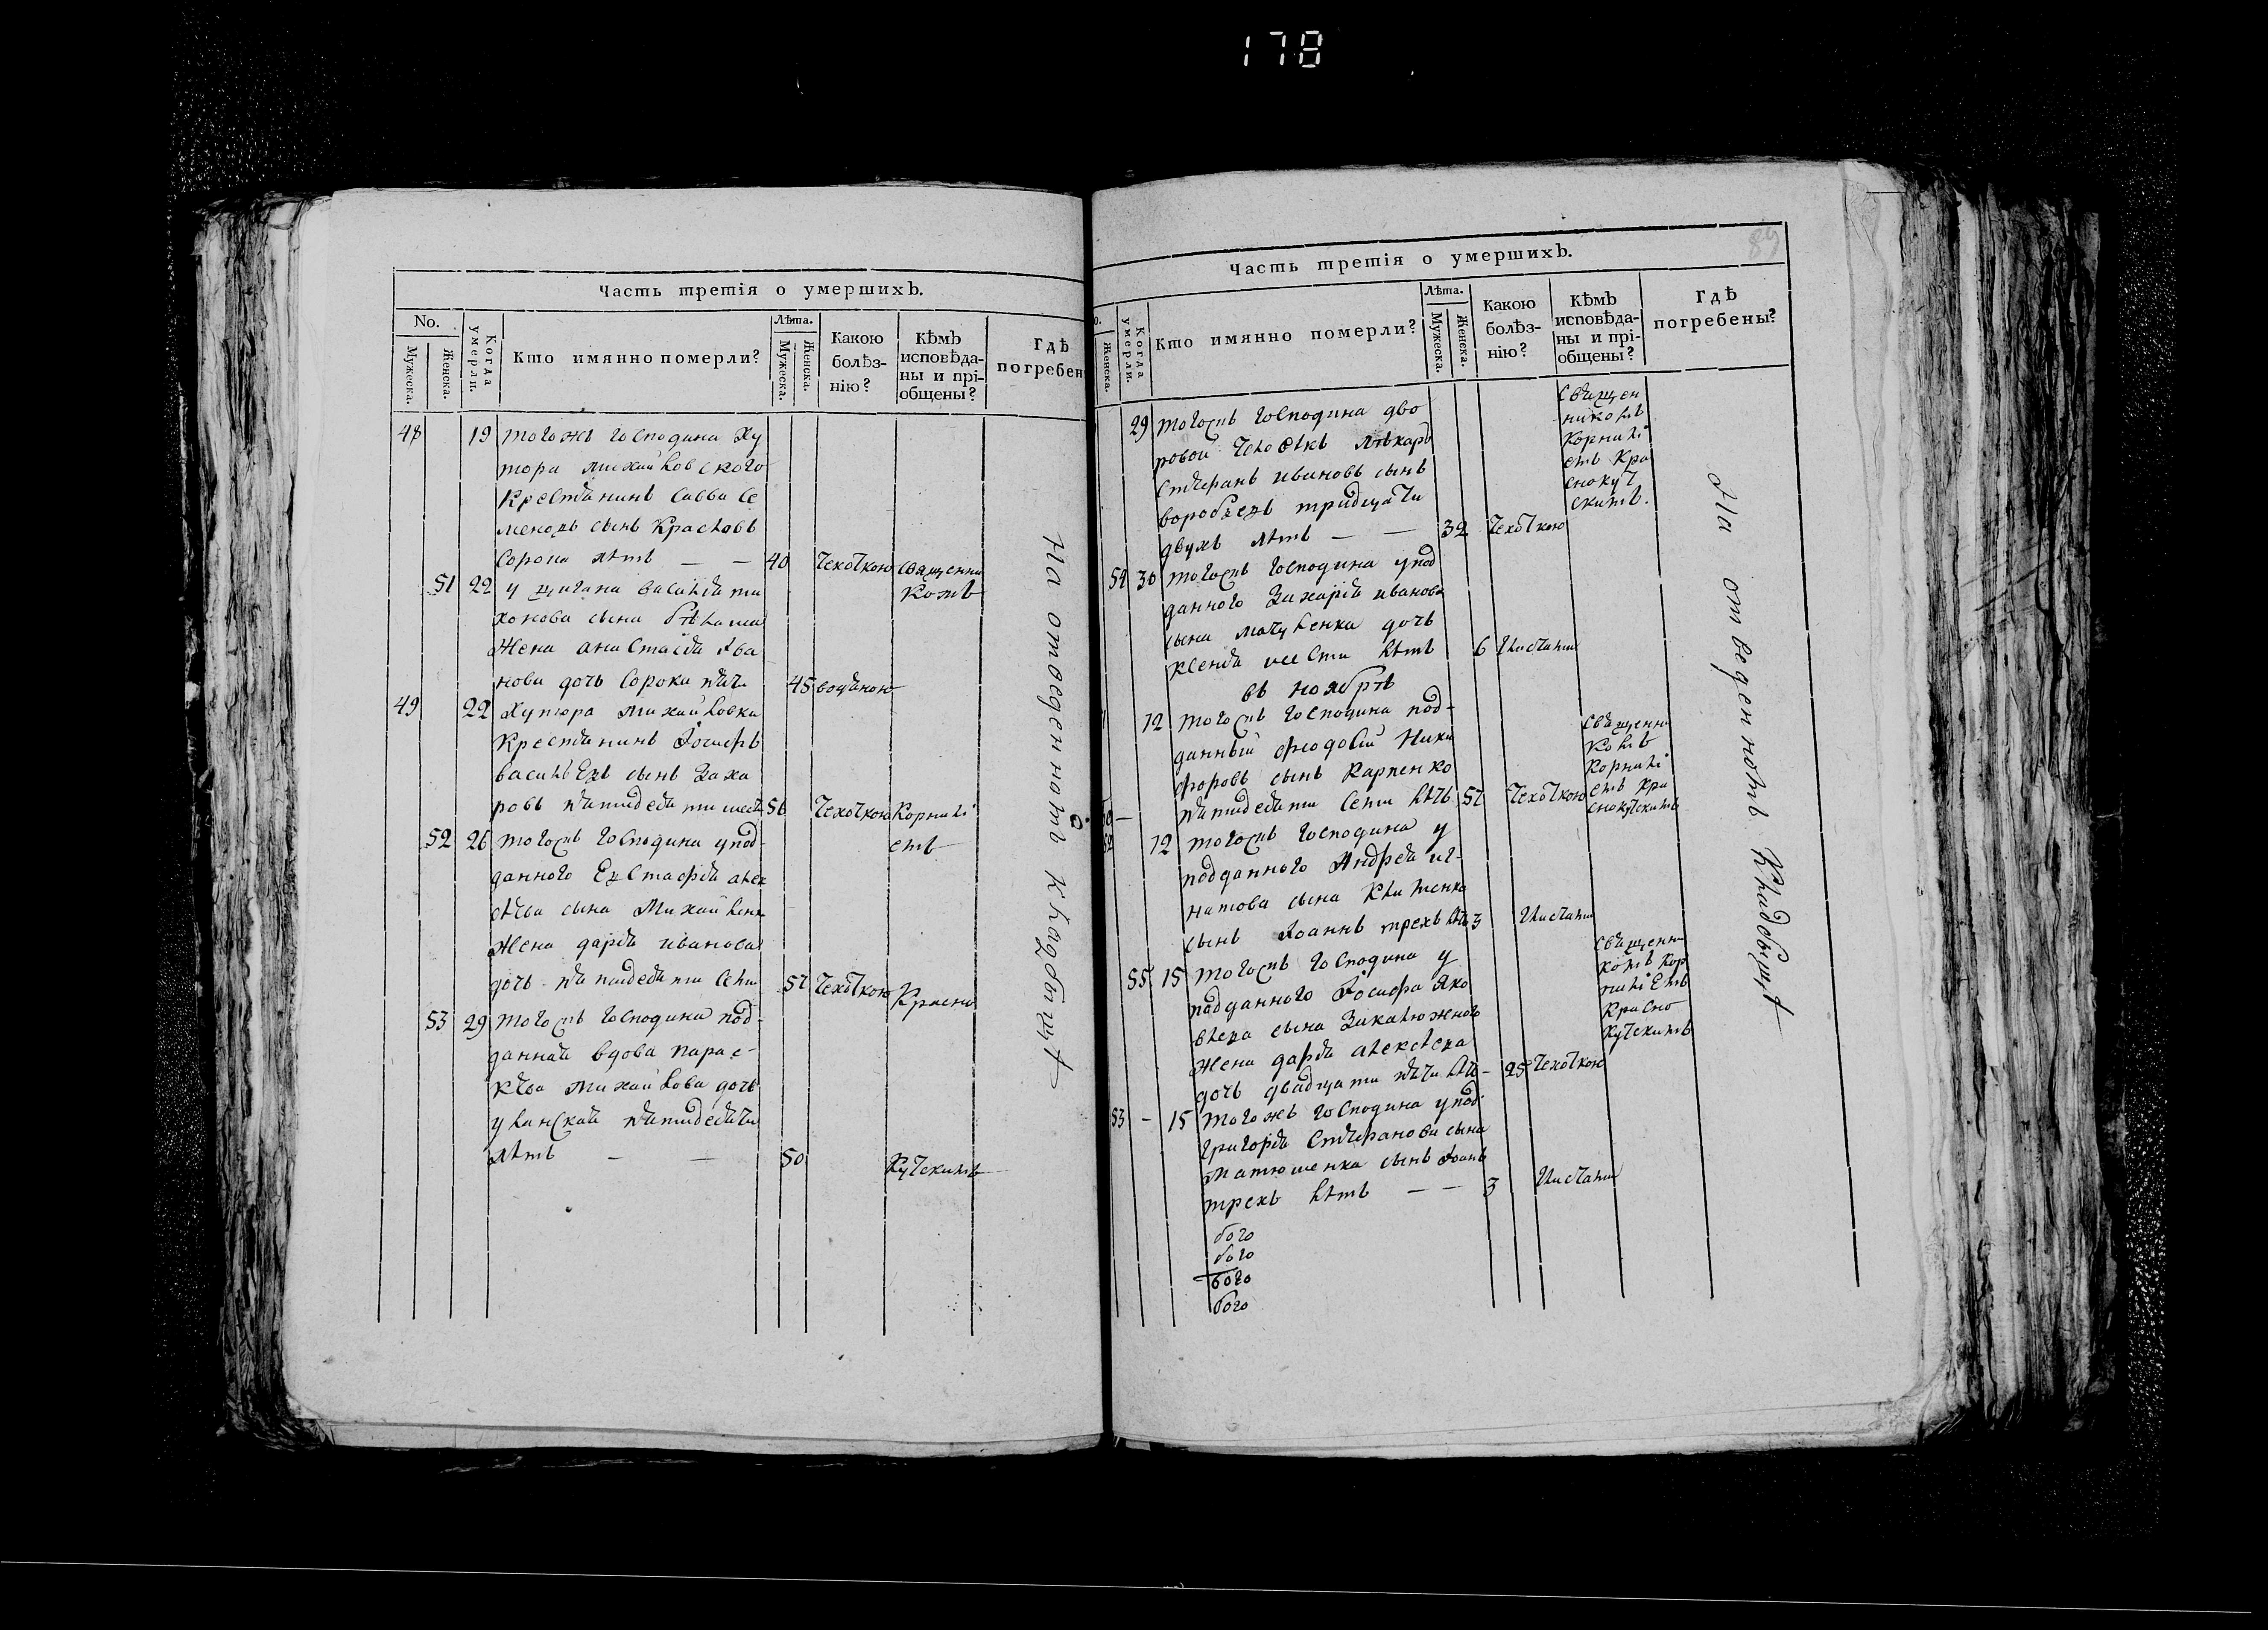 178
Часть третія о умершихъ.
No.
Мужеска.
Женска.
Когда умерли.
Кто имянно померли?
Лѣта.
Мужеска.
Женска.
Какою болѣз-
нію?
Кѣмъ
исповѣда-
ны и прі-
общены?
Гдѣ
погребен
48 19 тогожъ господина ху
тора михайловского
крестянинъ савва се
меновъ сынъ красновъ
сорока лѣтъ — — 40 чехоткою священни
51 22 у цигана василія ти комъ
хонова сына
жена анастасія ива
нова дочь сороки пяти 45 водяною
49 22 хутора михайловки
крестянинъ Іосифъ
васильевъ сынъ заха
ровъ пятидесяти шести 56 чехоткою корнилі
52 26 тогожъ господина у под- емъ
данного Евстафія алек
сѣева сына михайленк
жена дарія иванова
дочь пятидесяти семи 57 чехоткою красно
53 29 тогожъ господина под-
данная вдова парас-
кѣва михайлова дочь
уланская пятидесяти
лѣтъ — — 50 кутскимъ
На отведенномъ кладбищѣ
89
Часть третія о умершихъ.
Женска.
Когда умерли.
Кто имянно померли?
Лѣта.
Мужеска.
Женска.
Какою
болѣз-
нію?
Кѣмъ
исповѣда-
ны и прі-
общены?
Гдѣ
погребены?
29 тогожъ господина дво
ровой человѣкъ лѣкарь
стефанъ ивановъ сынъ
воробьевъ тридцати
двухъ лѣтъ — — 32 чехоткою
священ
никомъ
корнилі
емъ кра
снокут
скимъ.
54 30 тогожъ господина у под
данного захарія иванова
сына дочь
ксенія шести лѣтъ 6
въ ноябрѣ
12 тогожъ господина под-
данный феодосій ники
форовъ сынъ карпенко
пятидесяти семи лѣтъ 57 чехоткою
священни
комъ
корнилі
емъ кра
снокутскимъ
12 тогожъ господина у
подданного Андрея иг-
натова сына
сынъ Іоаннъ трехъ лѣтъ 3
55 15 тогожъ господина у
подданного Іосифа яко
влева сына закалюжного
жена дарія алексѣева
дочь двадцати пяти лѣ- 25 чехоткою
священни
комъ кор
ниліемъ
красно
кутскимъ
53 — 15 тогожъ господина у под
григорія стефанова сына
матюшенка сынъ Іоанъ
трехъ лѣтъ — — 3
бого
бого
бого
бого
На отведенномъ кладбищѣ